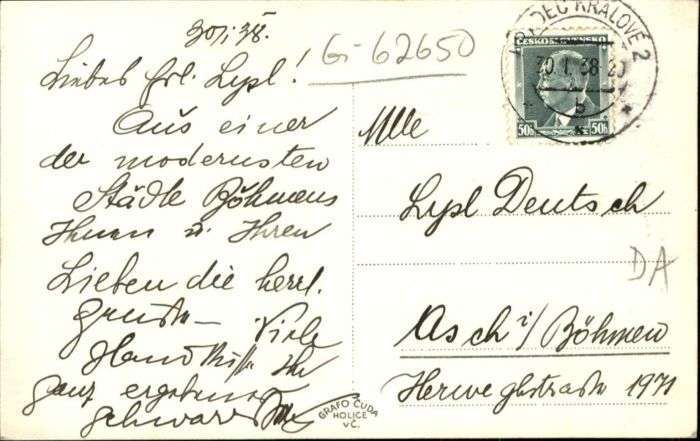 30/I.38.
G-62650
Liebes Frl. Lypl!
Aus einer
der modernsten
Städte Böhmens
Ihnen u. Ihren
Lieben die herrl.
Grüße – Viele
Handküße Ihr
ganz ergebener
Schwarz
Mlle
Lypl Deutsch
DA
Asch i/Böhmen
Herweghstrasse 1971
HRADEC KRÁLOVÉ 2
30.I.38-20
b
ČESKOSLOVENSKO
50h 50h
GRAFO ČUDA
HOLICE
v Č.